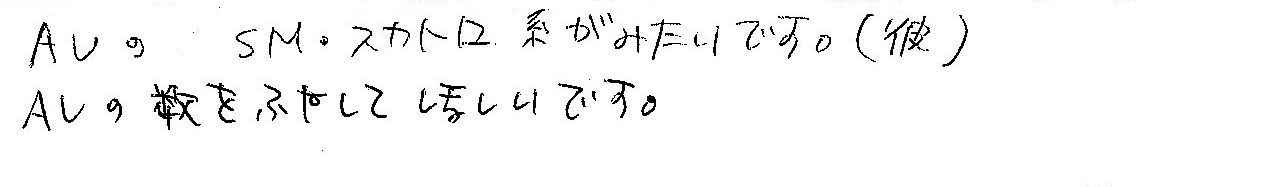 AVの SM・スカトロ系がみたいです。(彼)
AVの数をふやしてほしいです。